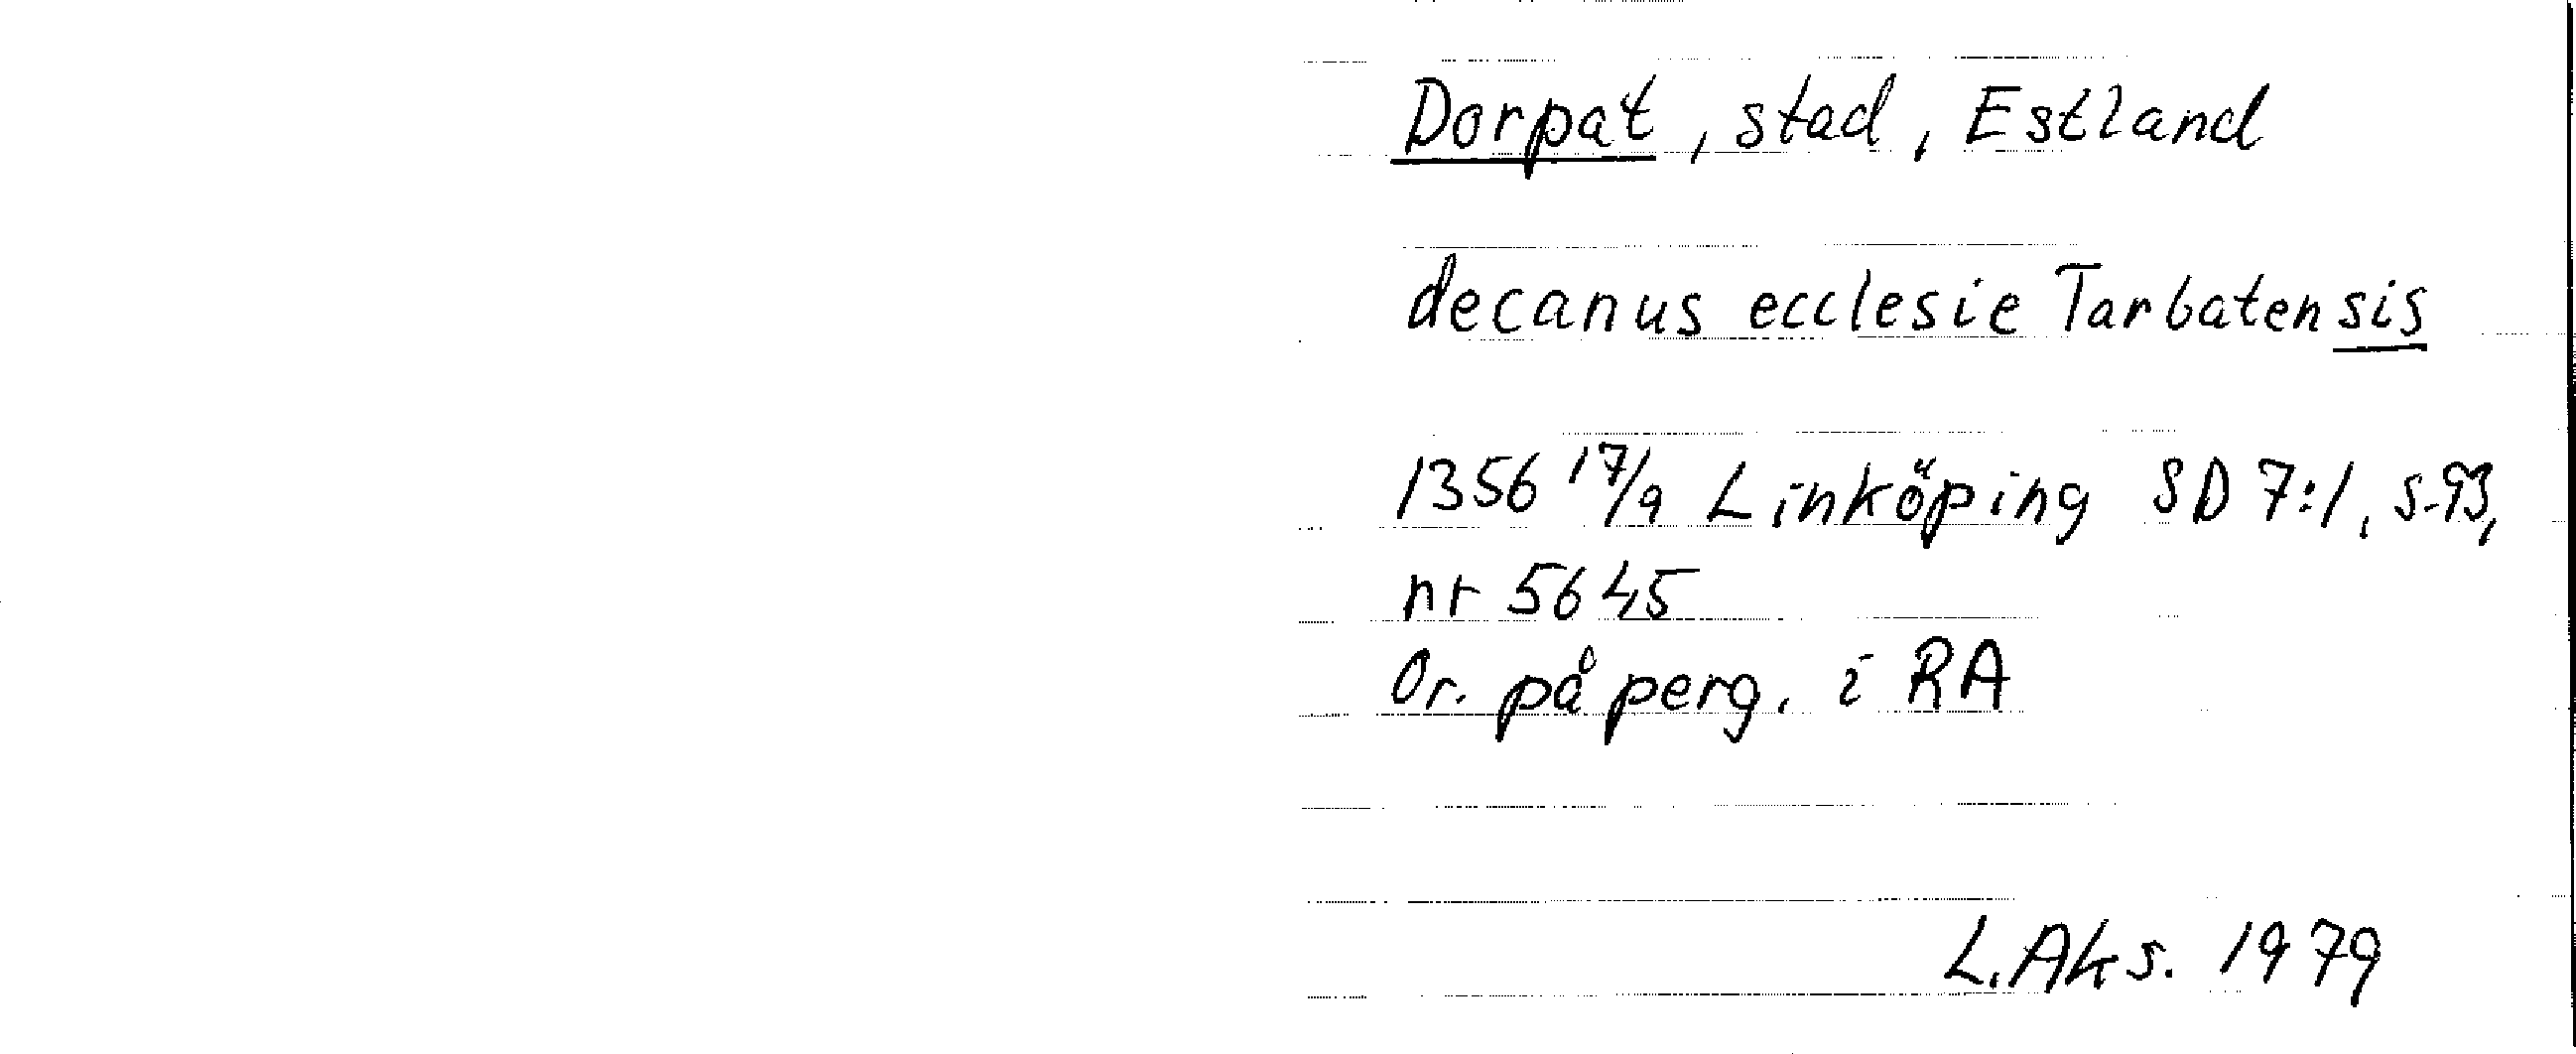 Dorpat, stad, Estland
decanus ecclesie Tarbatensis
1356 17/9 Linköping SD 7:1, s. 93,
nr 5645
Or. på perg. i RA
L. Aks. 1979